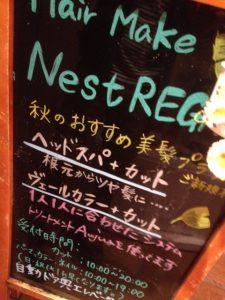 Hair Make
Nest REG
秋のおすすめ美髪プラ
ご新規
ヘッドスパ + カット
根元からツヤ髪に....
ヴェールカラー + カット
1人1人に合わせたシステム
トリートメント Aujuaを使ってます
受付時間:
カット 10:00~20:00
パーマ・カラー 10:00~19:00